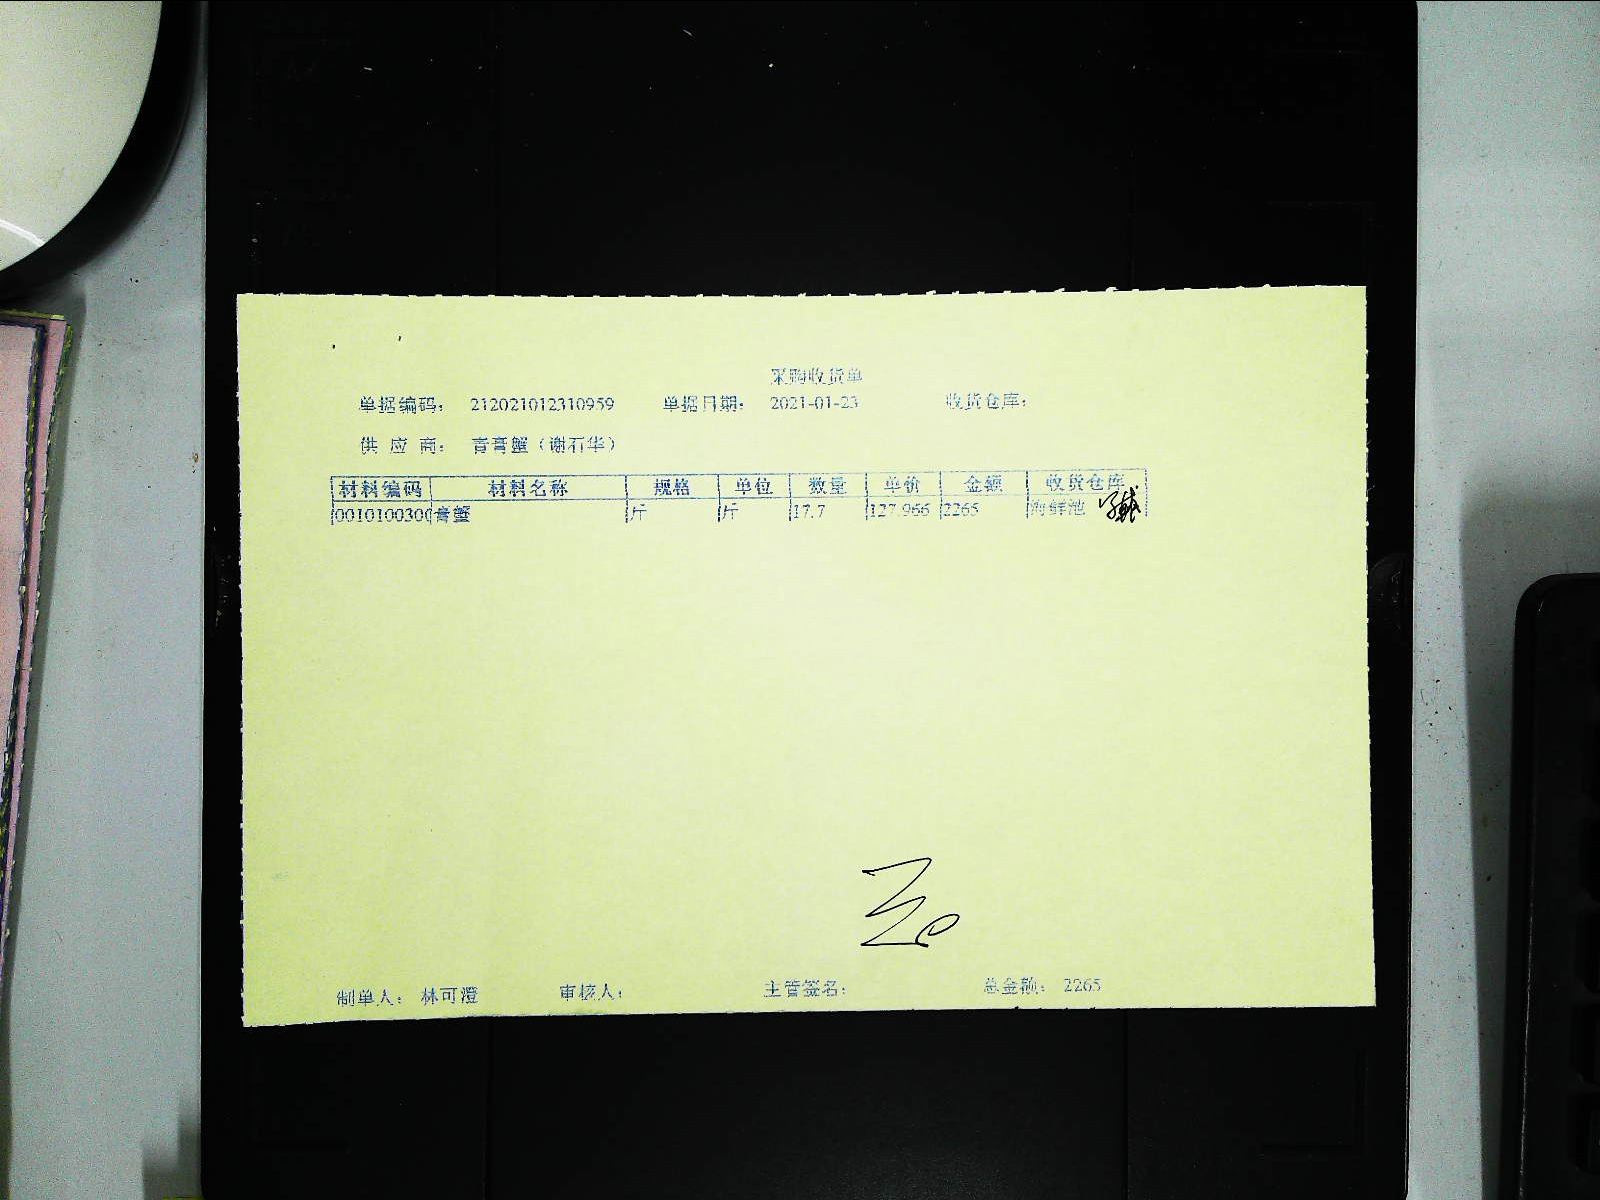 采购收货单
单据编码： 212021012310959 单据日期： 2021-01-23 收货仓库：
供 应 商： 青膏蟹（谢石华）
材料编码 材料名称 规格 单位 数量 单价 金额 收货仓库
0010100300 膏蟹 斤 斤 17.7 127.966 2265 海鲜池
制单人： 林可澄 审核人： 主管签名： 总金额： 2265